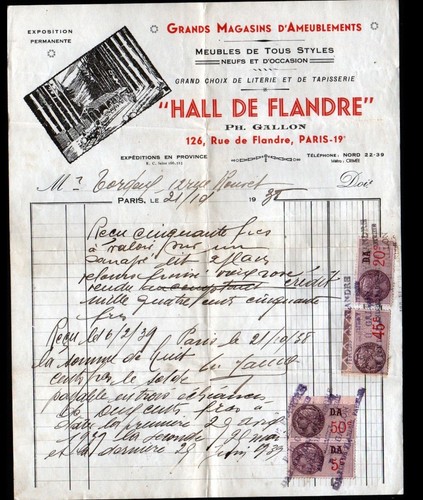 EXPOSITION
PERMANENTE
GRANDS MAGASINS D'AMEUBLEMENTS
MEUBLES DE TOUS STYLES
NEUFS ET D'OCCASION
GRAND CHOIX DE LITERIE ET DE TAPISSERIE
"HALL DE FLANDRE"
PH. GALLON
126, Rue de Flandre, PARIS-19e
EXPÉDITIONS EN PROVINCE
TÉLÉPHONE: NORD 22-39
Métro: CRIMÉE
Mr Doit
PARIS, LE 21/10 1938
Reçu cinquante frcs
à valoir sur un
canapé lit 2 places
vendu crédit
mille quatre cents cinquante
frs
Reçu le 6/2/39 Paris le 21/10/38
la somme de huit
cents frs le solde
payable en trois échéances
de cents frs
la première 29 avril
1939 la seconde 29 mai
et la dernière 29 juin 1939
DA 20c
DA 45c
DA 50c
DA 5c